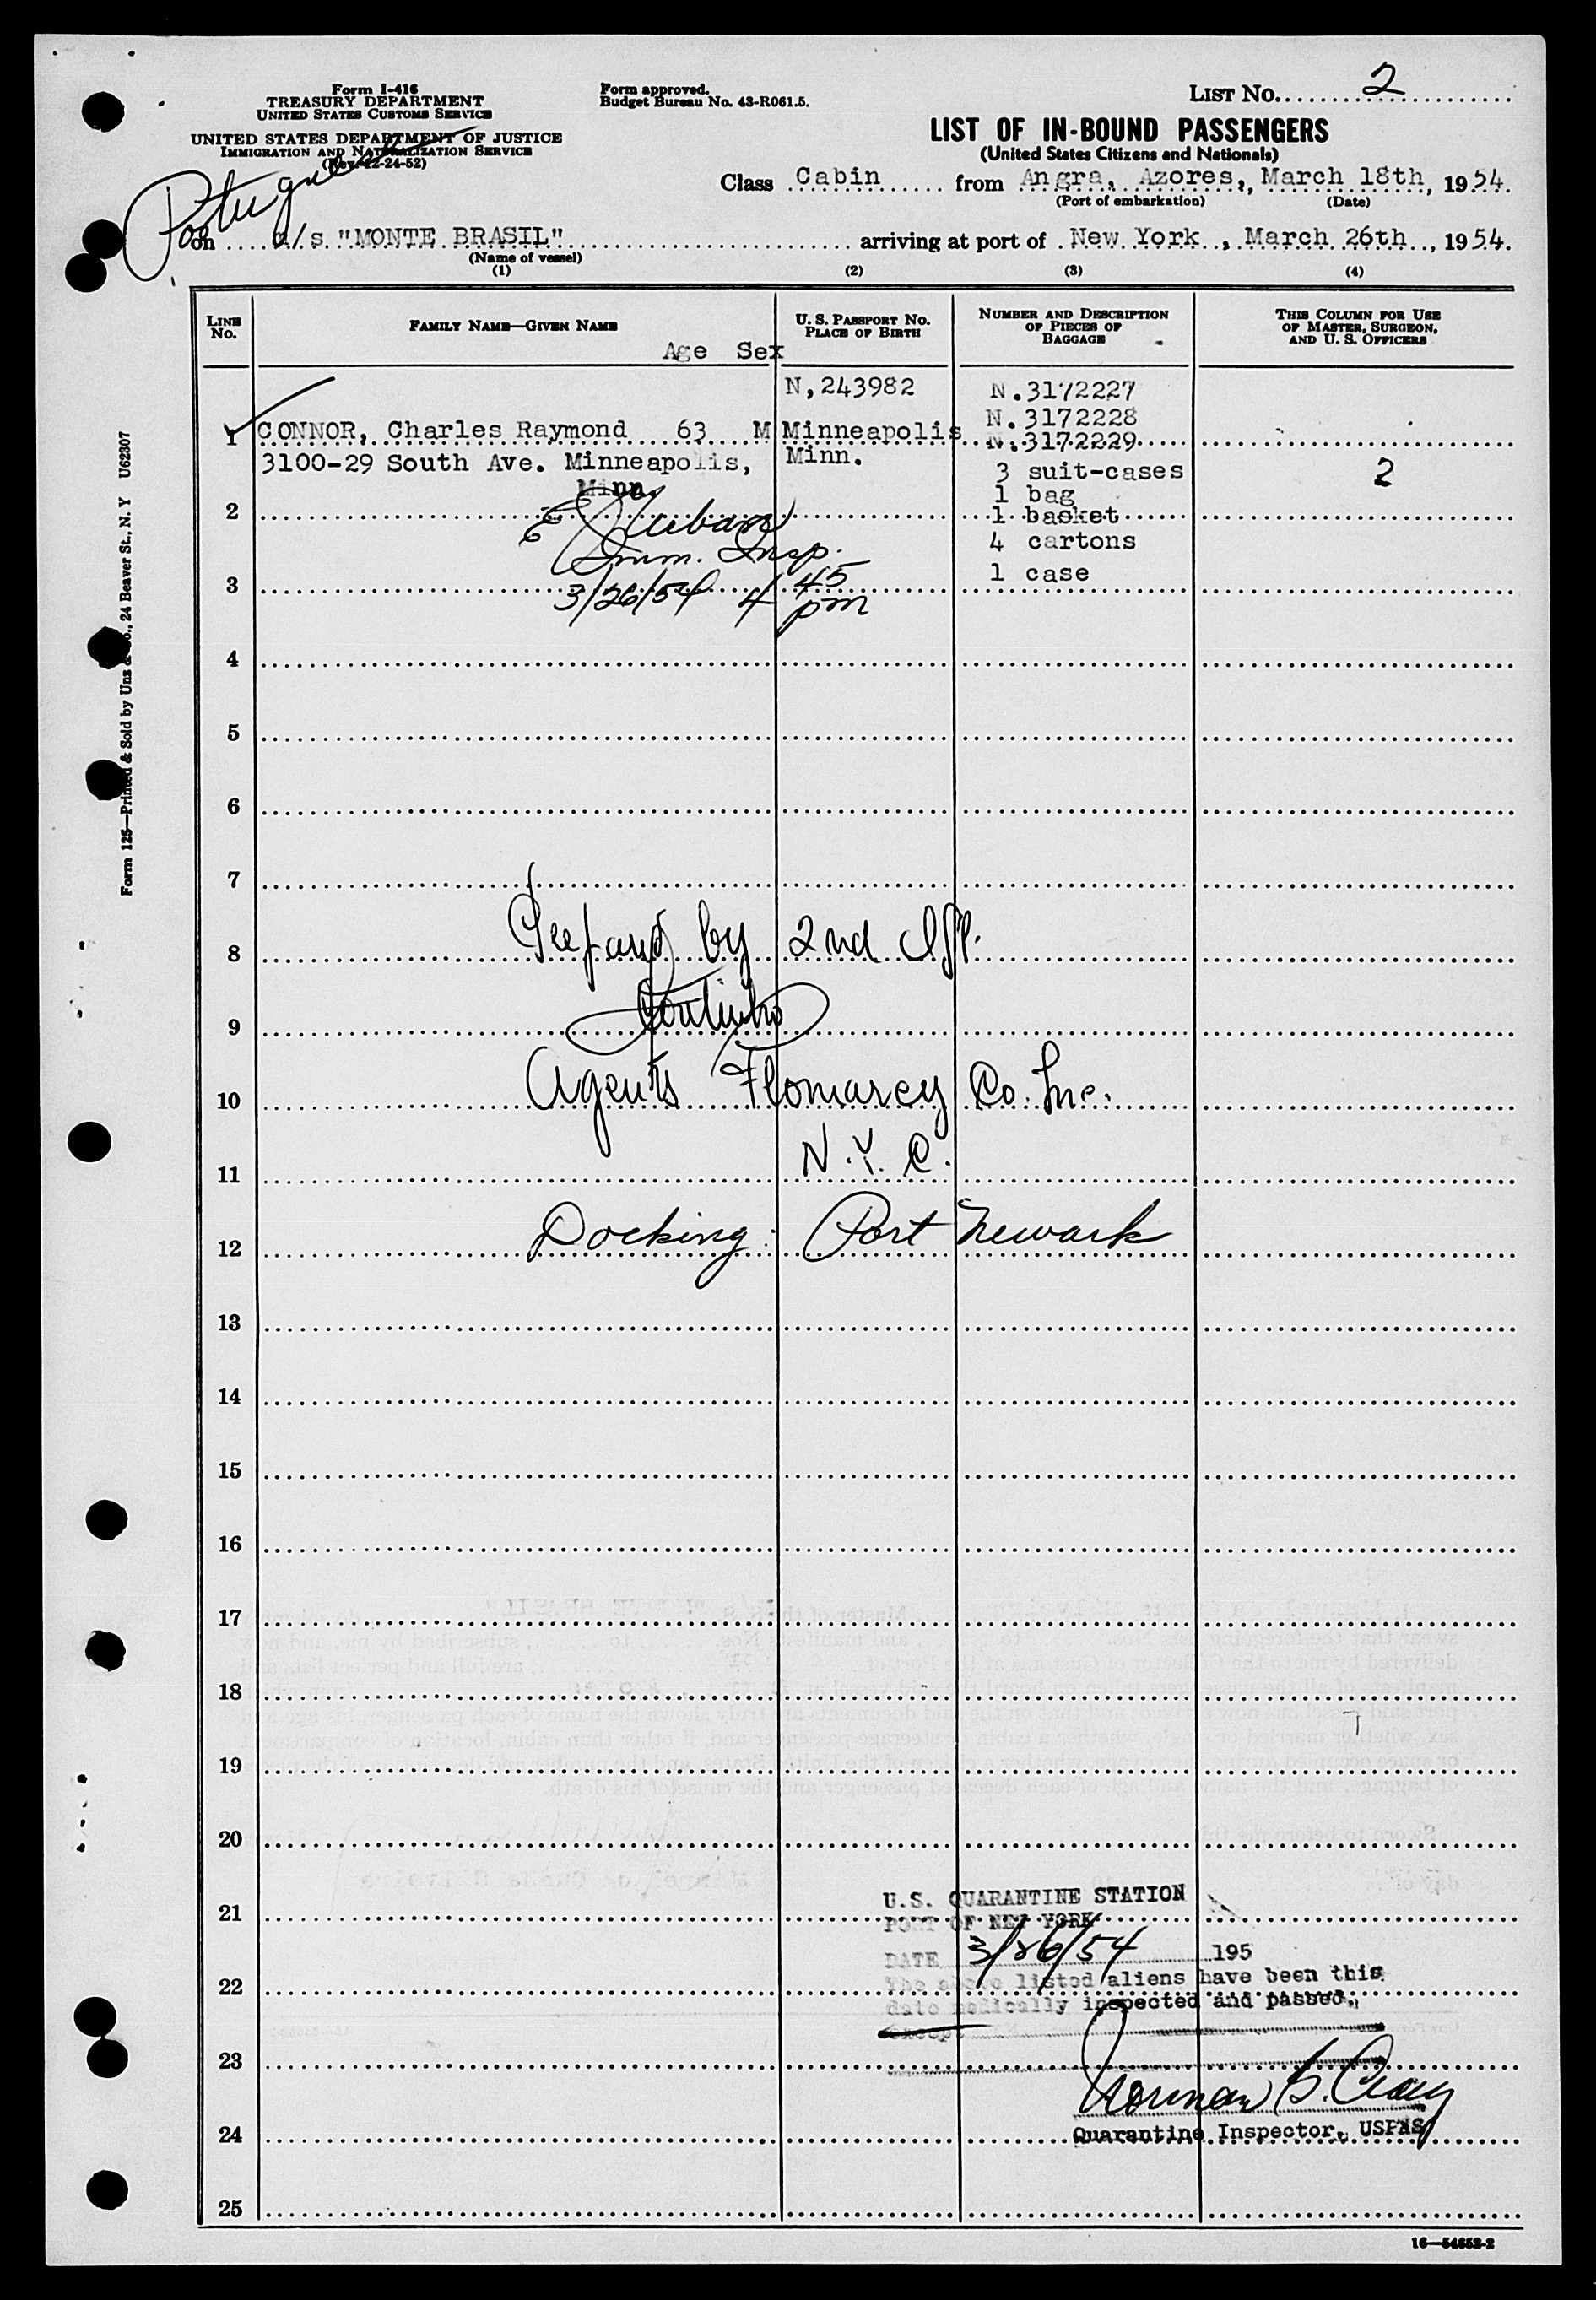 Form I-416
TREASURY DEPARTMENT
UNITED STATES CUSTOMS SERVICE
UNITED STATES DEPARTMENT OF JUSTICE
IMMIGRATION AND NATURALIZATION SERVICE
(Rev. 12-24-52)
Form approved.
Budget Bureau No. 43-R061.5.
LIST No. 2
LIST OF IN-BOUND PASSENGERS
(United States Citizens and Nationals)
Class Cabin from Angra, Azores, March 18th, 1954.
(Port of embarkation) (Date)
Portuguese
on m/s "MONTE BRASIL" arriving at port of New York, March 26th, 1954.
(Name of vessel)
(1) (2) (3) (4)
LINE No.
FAMILY NAME—GIVEN NAME
Age Sex
U. S. PASSPORT No.
PLACE OF BIRTH
NUMBER AND DESCRIPTION
OF PIECES OF
BAGGAGE
THIS COLUMN FOR USE
OF MASTER, SURGEON,
AND U. S. OFFICERS
N,243982 N.3172227
N.3172228
1 CONNOR, Charles Raymond 63 M Minneapolis N.3172229
3100-29 South Ave. Minneapolis, Minn. 3 suit-cases 2
Minn. 1 bag
2 1 basket
Imm. Insp. 4 cartons
3 3/26/54 4 45 pm 1 case
4
5
6
7
8 Prepared by 2nd Off.
9 Coutinho
10 Agents Flomarcy Co. Inc.
11 N.Y.C.
12 Docking: Port Newark
13
14
15
16
17
18
19
20
21
22
23
24
25
U.S. QUARANTINE STATION
PORT OF NEW YORK
DATE 3/26/54 195
The above listed aliens have been this
date medically inspected and passed,
except
Norman G. Craig
Quarantine Inspector, USPHS
16—54652-2
Form 125—Printed & Sold by Unz & Co., 24 Beaver St., N. Y U62307